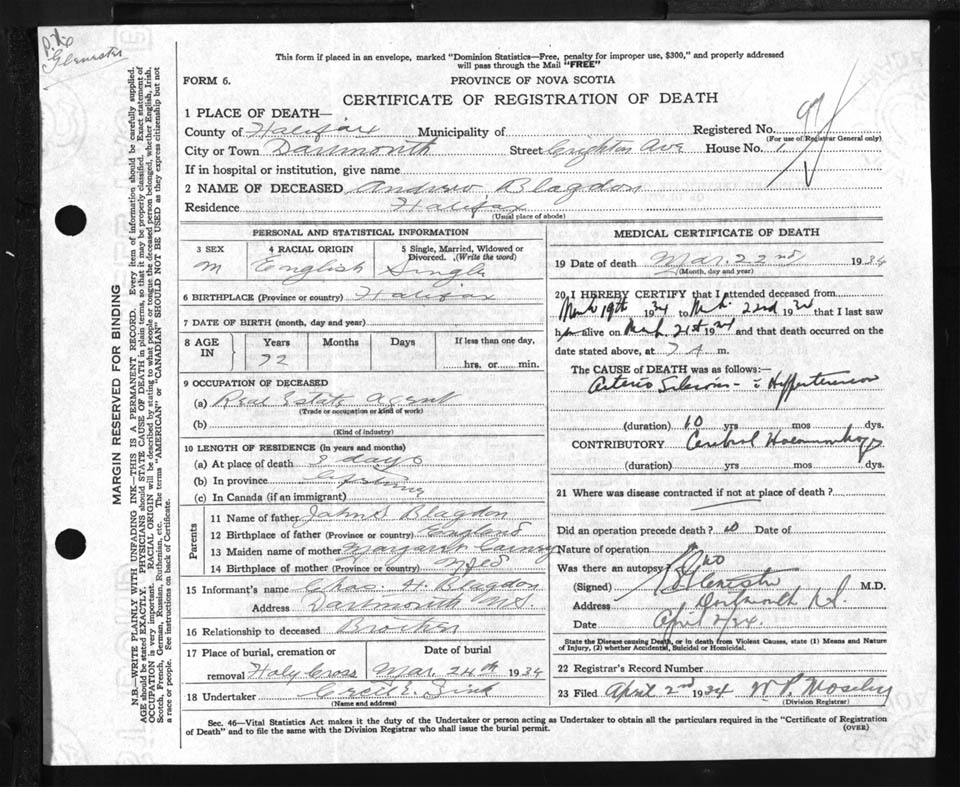 Glenister
This form if placed in an envelope, marked "Dominion Statistics—Free, penalty for improper use, $300," and properly addressed
will pass through the Mail "FREE"
FORM 6.
PROVINCE OF NOVA SCOTIA
CERTIFICATE OF REGISTRATION OF DEATH
1 PLACE OF DEATH—
County of Halifax Municipality of Registered No.
(For use of Registrar General only)
City or Town Dartmouth Street Crighton Ave House No. 1
If in hospital or institution, give name
2 NAME OF DECEASED Andrew Blagdon
Residence Halifax
(Usual place of abode)
PERSONAL AND STATISTICAL INFORMATION
3 SEX 4 RACIAL ORIGIN 5 Single, Married, Widowed or
Divorced. (Write the word)
M English Single
6 BIRTHPLACE (Province or country) Halifax
7 DATE OF BIRTH (month, day and year)
8 AGE IN Years Months Days If less than one day,
72 hrs. or min.
9 OCCUPATION OF DECEASED
(a) Real Estate Agent
(Trade or occupation or kind of work)
(b)
(Kind of industry)
10 LENGTH OF RESIDENCE (in years and months)
(a) At place of death 3 days
(b) In province Lifetime
(c) In Canada (if an immigrant)
Parents
11 Name of father John S Blagdon
12 Birthplace of father (Province or country) England
13 Maiden name of mother Margaret
14 Birthplace of mother (Province or country) Nfld
15 Informant's name Chas. H. Blagdon
Address Dartmouth N.S.
16 Relationship to deceased Brother
17 Place of burial, cremation or Date of burial
removal Holy Cross Mar. 24th 1934
18 Undertaker Cecil E. Zink
(Name and address)
MEDICAL CERTIFICATE OF DEATH
19 Date of death Mar. 22nd 1934
(Month, day and year)
20 I HEREBY CERTIFY that I attended deceased from
March 19th 1934 to Mch. 22nd 1934 that I last saw
him alive on Mch. 21st 1934 and that death occurred on the
date stated above, at 7 A m.
The CAUSE of DEATH was as follows:—
Arterio Sclerosis - c Hypertension
(duration) 10 yrs mos dys.
CONTRIBUTORY Cerebral Haemorrhage
(duration) yrs mos dys.
21 Where was disease contracted if not at place of death?
Did an operation precede death? no Date of
Nature of operation
Was there an autopsy? no
(Signed) Glenister M.D.
Address Dartmouth N.S.
Date April 2/34.
State the Disease causing Death, or in death from Violent Causes, state (1) Means and Nature
of Injury, (2) whether Accidental, Suicidal or Homicidal.
22 Registrar's Record Number
23 Filed April 2nd 1934 W. P. Moseley
(Division Registrar)
Sec. 46—Vital Statistics Act makes it the duty of the Undertaker or person acting as Undertaker to obtain all the particulars required in the "Certificate of Registration
of Death" and to file the same with the Division Registrar who shall issue the burial permit.
(OVER)
MARGIN RESERVED FOR BINDING
N.B.—WRITE PLAINLY WITH UNFADING INK—THIS IS A PERMANENT RECORD. Every item of information should be carefully supplied.
AGE should be stated EXACTLY. PHYSICIANS should STATE CAUSE OF DEATH in plain terms, so that it may be properly classified. Exact statement of
OCCUPATION is very important. RACIAL ORIGIN will be described by stating to what people or tongue the deceased person belonged, whether English, Irish,
Scotch, French, German, Russian, Ruthenian, etc. The terms "AMERICAN" or "CANADIAN" SHOULD NOT BE USED as they express citizenship but not
a race or people. See instructions on back of Certificate.